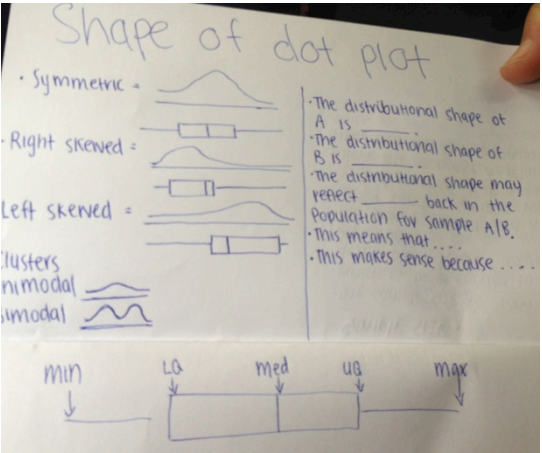 Shape of dot plot
· Symmetric =
· Right skewed =
Left skewed =
Clusters
nimodal
imodal
· The distributional shape of
A is ______.
· The distributional shape of
B is ______.
· The distributional shape may
reflect ______ back in the
population for sample A/B.
· This means that ....
· This makes sense because ....
min
LQ
med
UQ
max